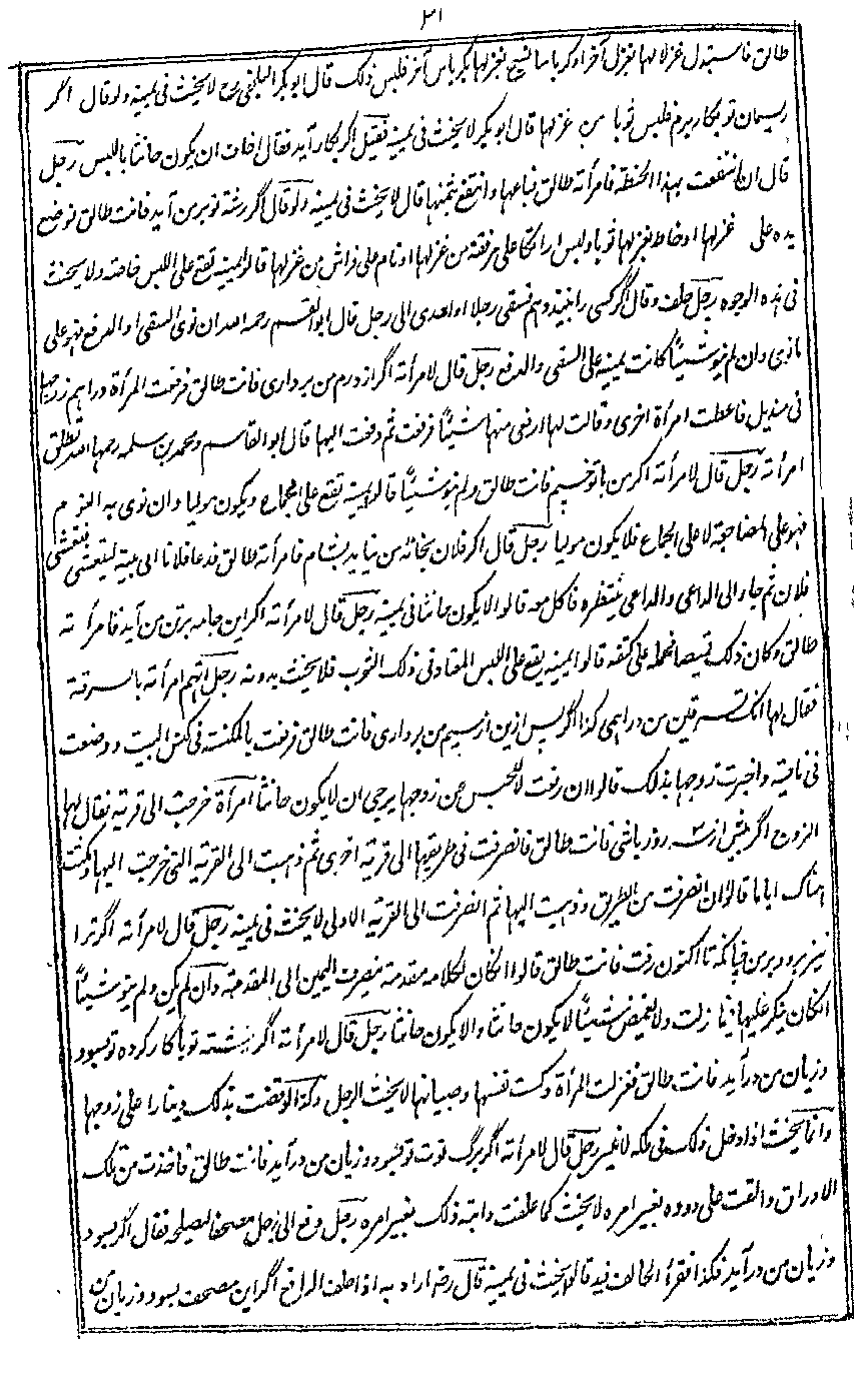 ٣١
طالق فاستبدل غزلها بغزل آخر او كرباسا نسج بغزلها بكرباس آخر فلبس ذلك قال ابو بكر البلخي رح لا يحنث في يمينه ولو قال اگر
ريسمان تو بكار برم فلبس ثوبا من غزلها قال ابو بكر لا يحنث في يمينه فقيل اگر بكار آيد فقال اخاف ان يكون حانثا باللبس رجل
قال ان انتفعت بهذا الحنطة فامرأته طالق فباعها وانتفع بثمنها قال لا يحنث في يمينه ولو قال اگر رشته تو بر من آيد فانت طالق فوضع
يده على غزلها او خاط بغزلها ثوبا ولبس او اتكا على مرفقة من غزلها او نام على فراش من غزلها قالوا يمينه تقع على اللبس خاصة ولا يحنث
في هذه الوجوه رجل حلف وقال اگر كسى را نبيذ دهم فسقى رجلا او اهدى الى رجل قال ابو القسم رحمه الله ان نوى السقي او الدفع فهو على
ما نوى وان لم ينو شيئًا كانت يمينه على السقي والدفع رجل قال لامرأته اگر از درم من بردارى فانت طالق فرفعت المرأة دراهم زوجها
في منديل فاعطت امرأة اخرى وقالت لها ارفعي منها شيئًا فرفعت ثم دفعت اليها قال ابو القاسم ومحمد بن سلمه رحمهما الله تطلق
امرأته رجل قال لامرأته اگر من با تو خسبم فانت طالق ولم ينو شيئًا قالوا يمينه تقع على الجماع ويكون موليا وان نوى به النوم
فهو على المضاجعة لا على الجماع فلا يكون موليا رجل قال اگر فلان بخانه من نيايد بشام فامرأته طالق فدعا فلانا الى بيته ليتعشى فتعشى
فلان ثم جاء الى الداعي والداعي ينتظره فاكل معه قالوا لا يكون حانثا في يمينه رجل قال لامرأته اگر اين جامه برتن من آيد فامرأته
طالق وكان ذلك قميصا فحمله على كتفه قالوا يمينه يقع على اللبس المعتاد في ذلك الثوب فلا يحنث بدونه رجل اتهم امرأته بالسرقة
فقال لها انك تسرقين من دراهمى كذا اگر پس ازين از سيم من بردارى فانت طالق فرفعت بالمكنسة في كنس البيت ووضعت
في ناحية واخبرت زوجها بذلك قالوا ان رفعت لا للحبس عن زوجها يرجى ان لا يكون حانثا امرأة خرجت الى قرية فقال لها
الزوج اگر بيش از سه روز باشى فانت طالق فانصرفت في طريقها الى قرية اخرى ثم ذهبت الى القرية التي خرجت اليها ومكثت
هناك اياما قالوا ان انصرفت من الطريق وذهبت اليها ثم انصرفت الى القرية الاولى لا يحنث في يمينه رجل قال لامرأته اگر ترا
نيز برود بر من چنانكه تا اكنون رفت فانت طالق قالوا ان كان لكلامه مقدمة ينصرف اليمين الى المقدمة وان لم يكن ولم ينو شيئًا
ان كان ينكر عليها زلت ولا يغمض شيئًا لا يكون حانثا والا يكون حانثا رجل قال لامرأته اگر رشته تو يا كار كرده تو بسود
وزيان من در آيد فانت طالق فغزلت المرأة وكست نفسها وصبيانها لا يحنث الرجل وكذا لو قضت بذلك دينارا على زوجها
وانما يحنث اذا دخل ذلك في ملكه لا غير رجل قال لامرأته اگر برگ توت تو بسود وزيان من در آيد فانت طالق فاخذت من تلك
الاوراق والقت على دوده بغير امره لا يحنث كما علفت دابته ذلك بغير امره رجل دفع الى رجل مصحفا ليصلحه فقال اگر بسود
وزيان من در آيد فكذا فقرأ الحالف فيه قالوا يحنث في يمينه قال رضه اراد به اذا حلف الدافع اگر اين مصحف بسود وزيان من